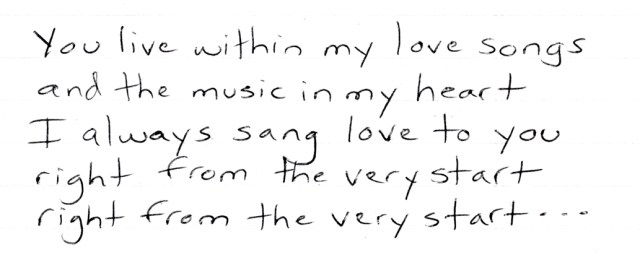 You live within my love songs
and the music in my heart
I always sang love to you
right from the very start
right from the very start...